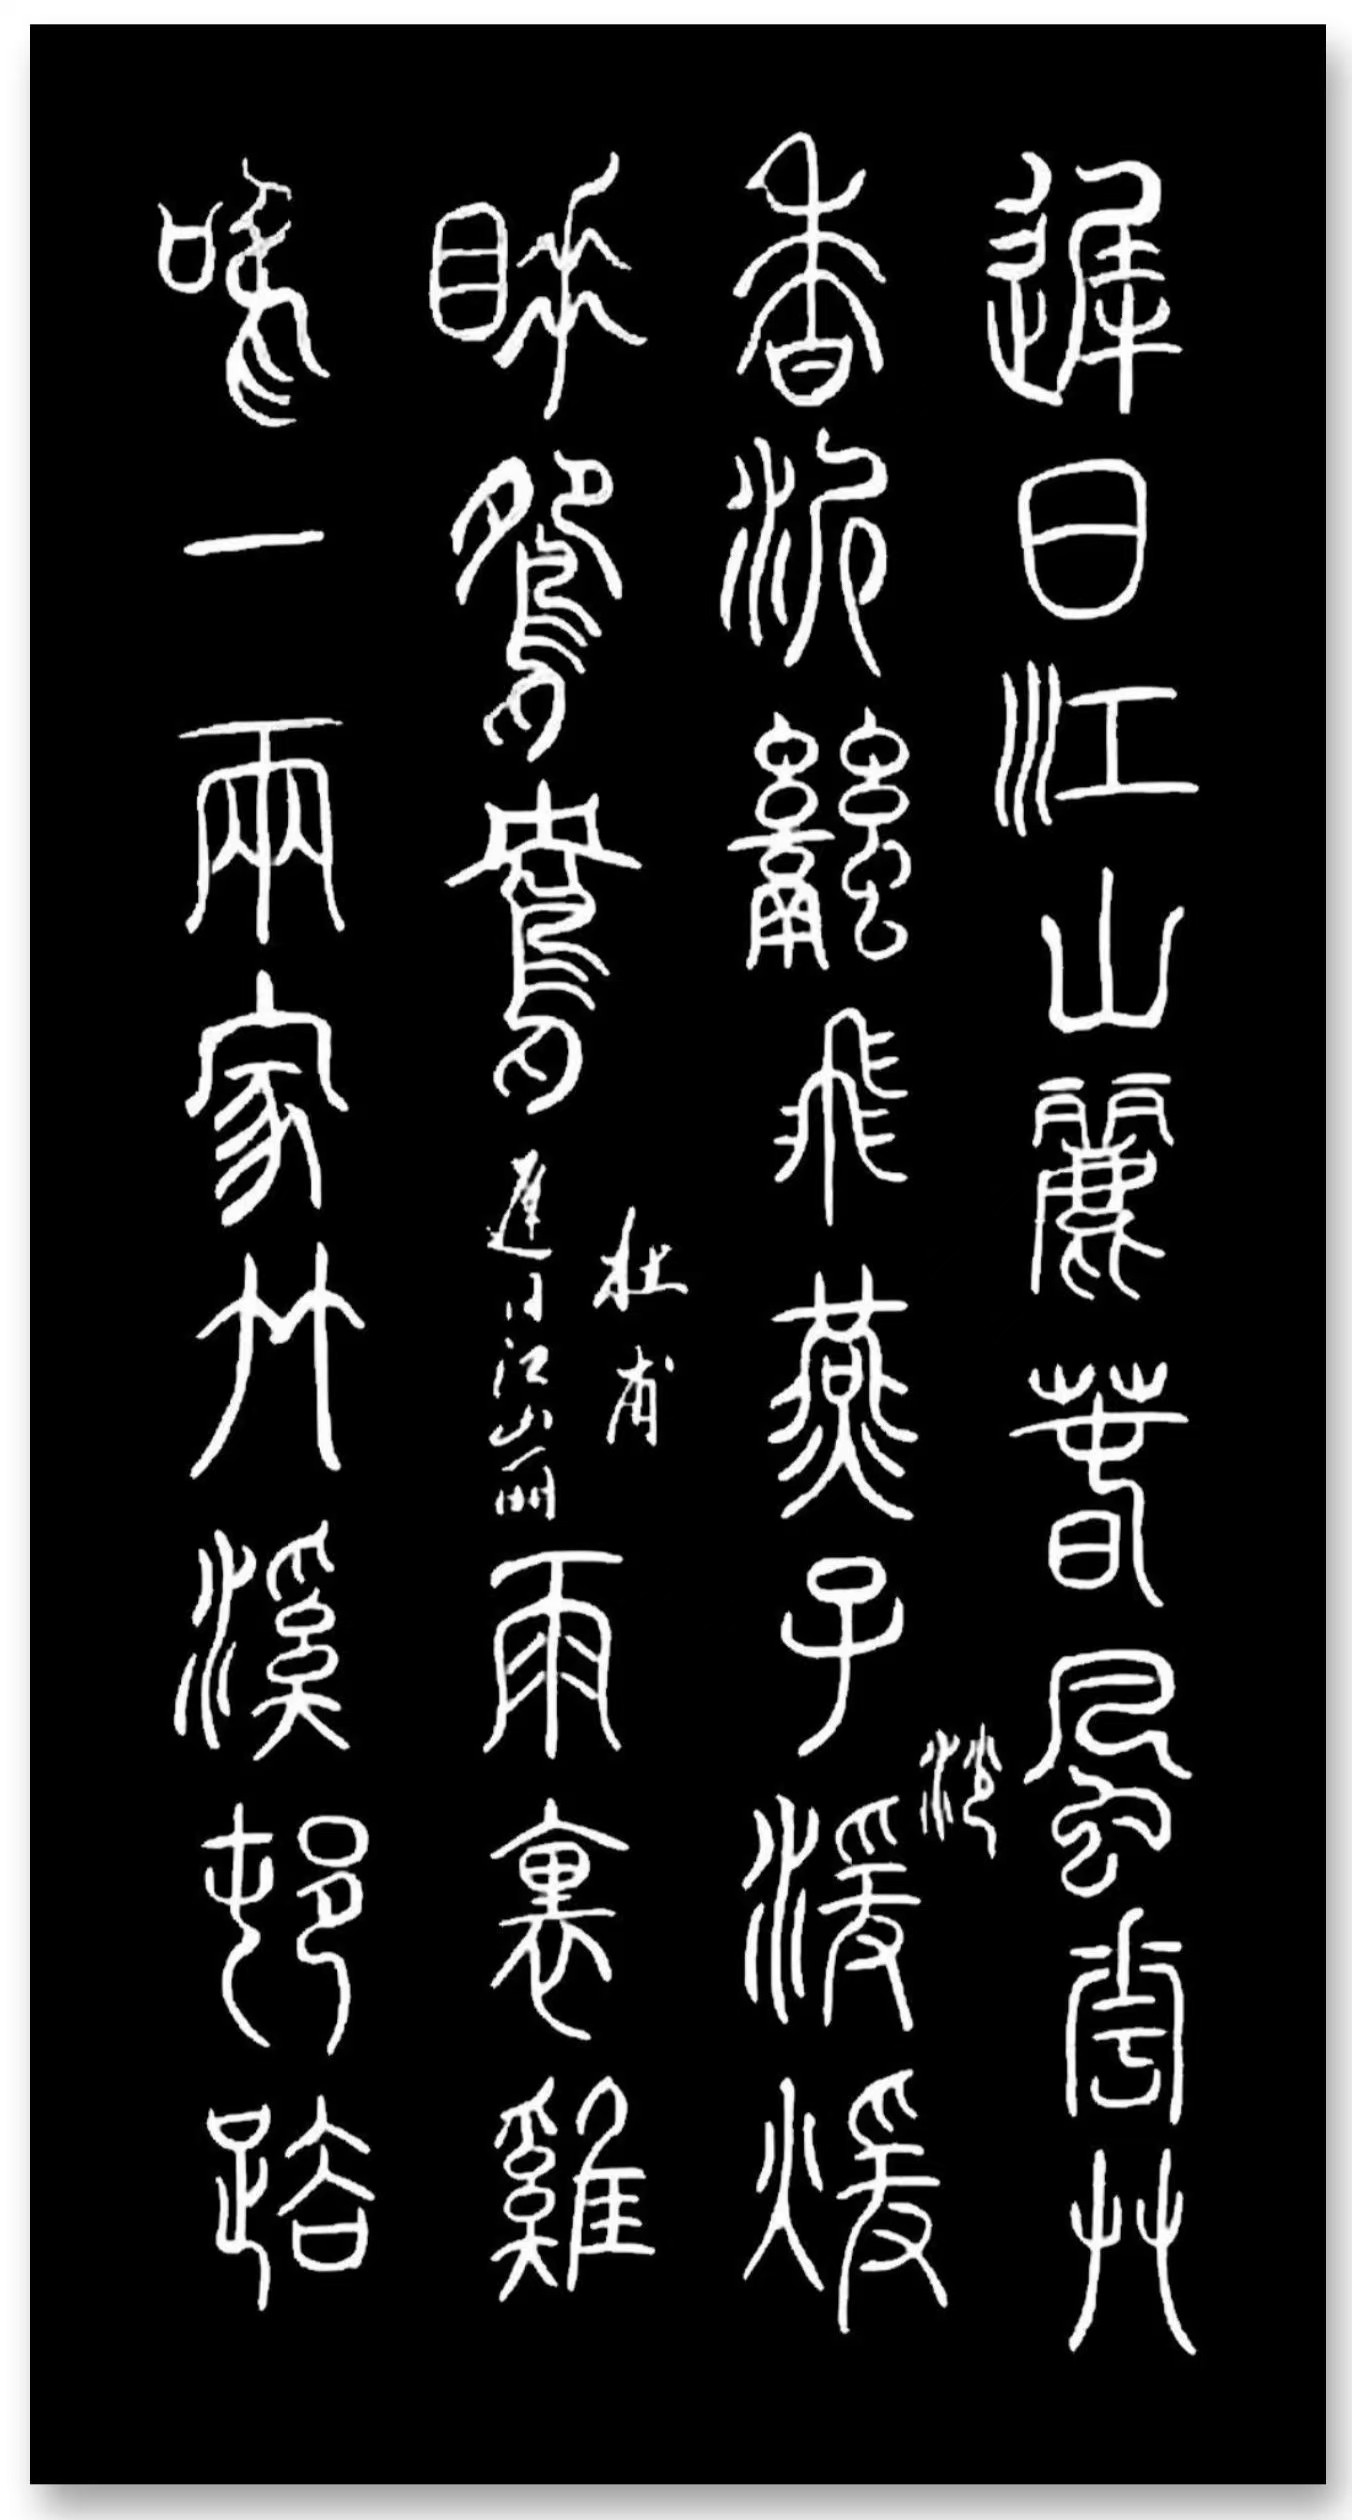 遲日江山麗春風花艸
香泥融飛燕子湲煖
沙
睡鴛鴦
杜甫
遲日江山丽
雨裏雞
鳴一兩家竹溪邨路